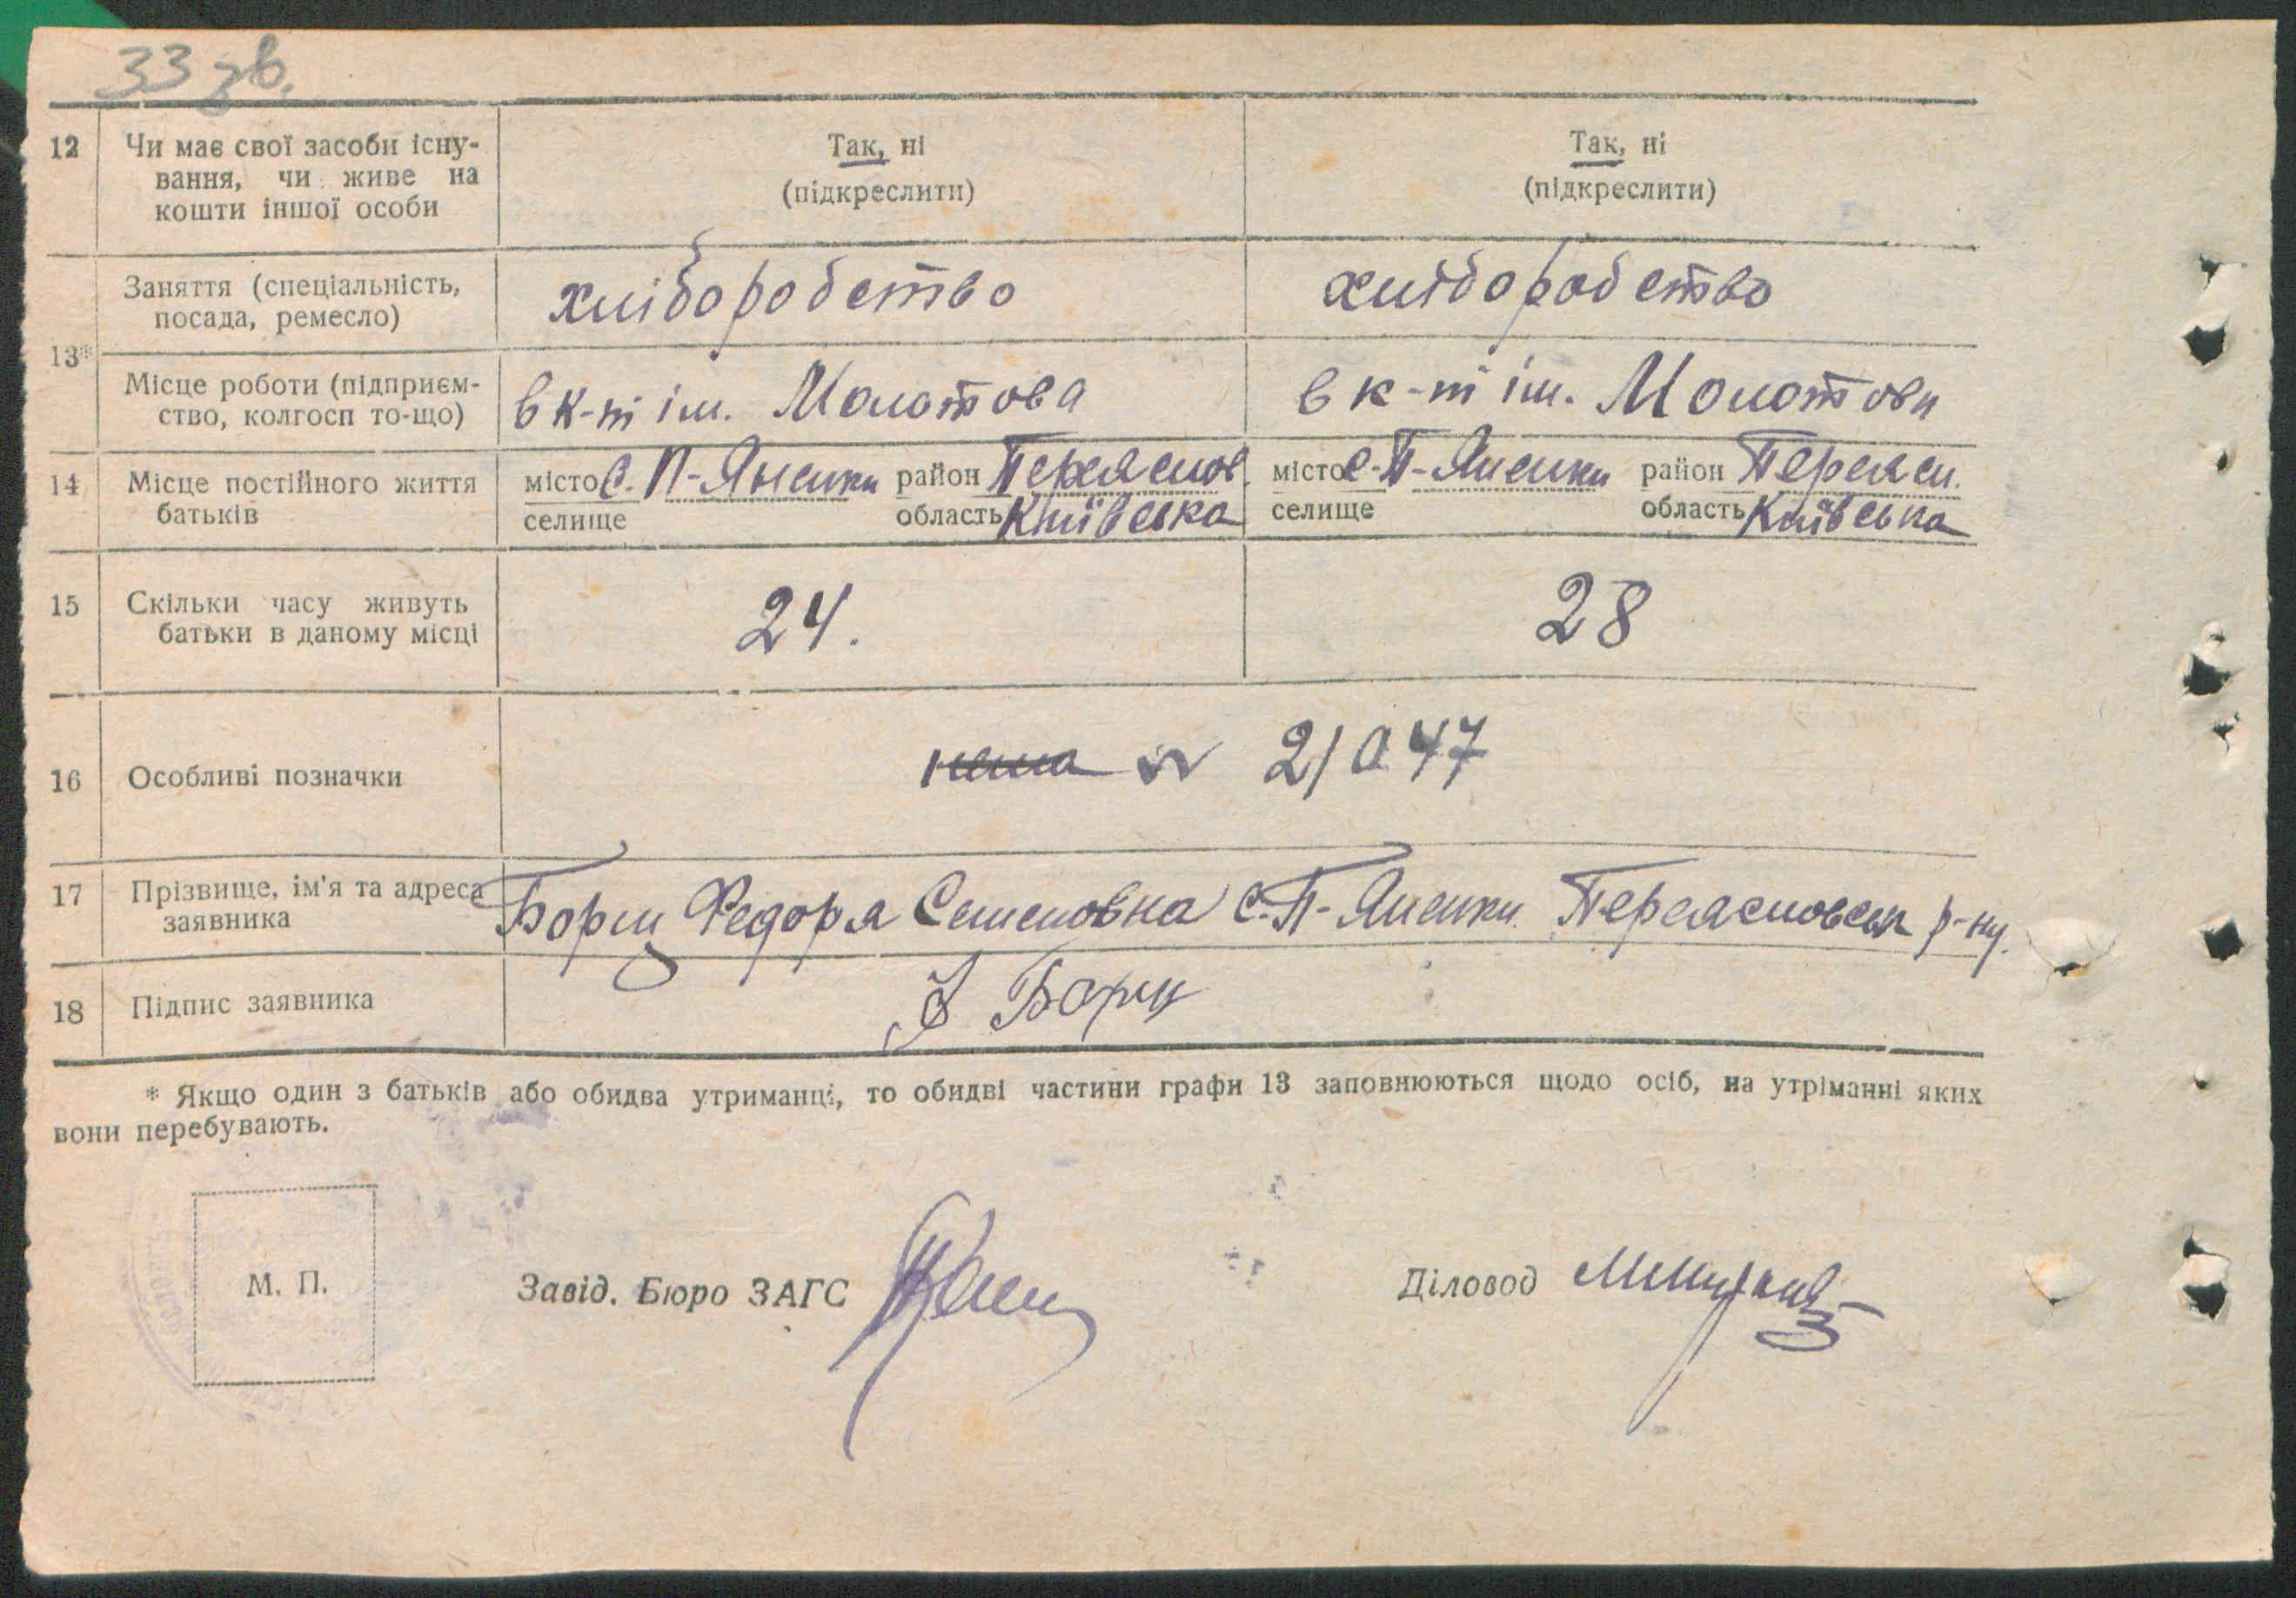 33 зв.
12 Чи має свої засоби існу- Так, ні Так, ні
вання, чи живе на (підкреслити) (підкреслити)
кошти іншої особи
13* Заняття (спеціальність, хліборобство хліборобство
посада, ремесло)
Місце роботи (підприєм- в к-п ім. Молотова в к-п ім. Молотова
ство, колгосп то-що)
14 Місце постійного життя місто с. П-Яненки район Переяслов. місто с-П-Яненки район Переясл.
батьків селище область Київська селище область Київська
15 Скільки часу живуть 24. 28
батьки в даному місці
16 Особливі позначки нема 21047
17 Прізвище, ім'я та адреса Борщ Федора Семеновна с-П-Яненки. Переясловськ р-ну.
заявника
18 Підпис заявника Борщ
* Якщо один з батьків або обидва утриманці, то обидві частини графи 13 заповнюються щодо осіб, на утріманні яких
вони перебувають.
М. П. Завід. Бюро ЗАГС Діловод